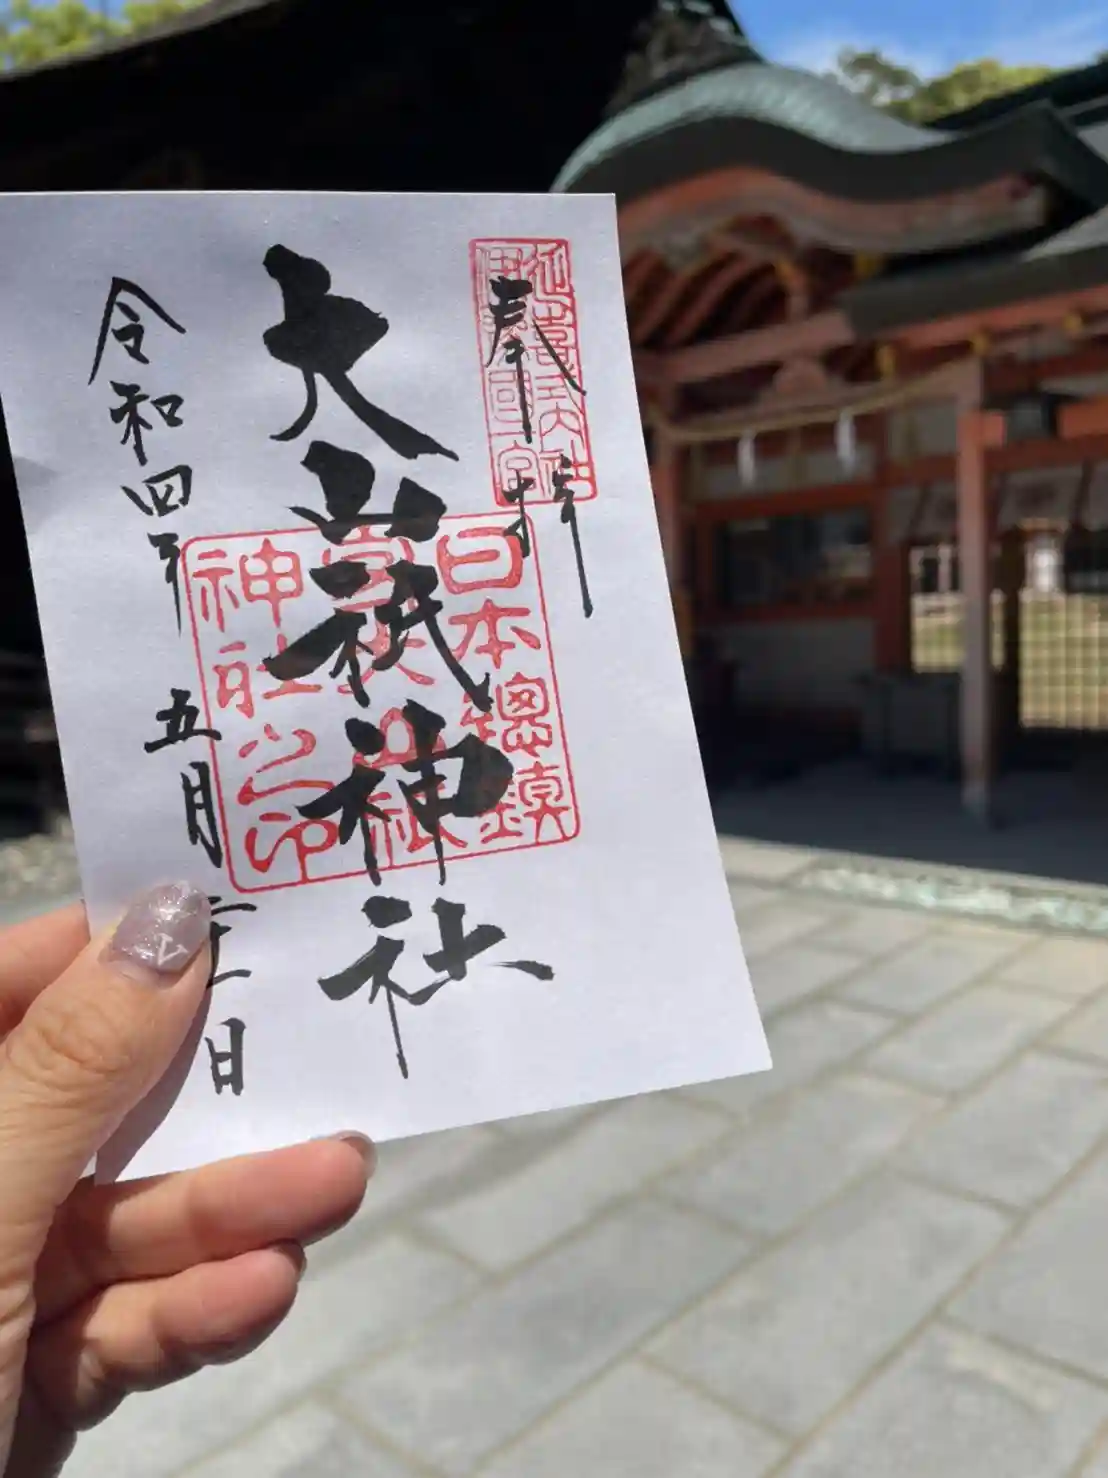 奉拝
延喜式内社
日本總鎮
守大山祇
神社之印
大山祇神社
令和四年
五月
日